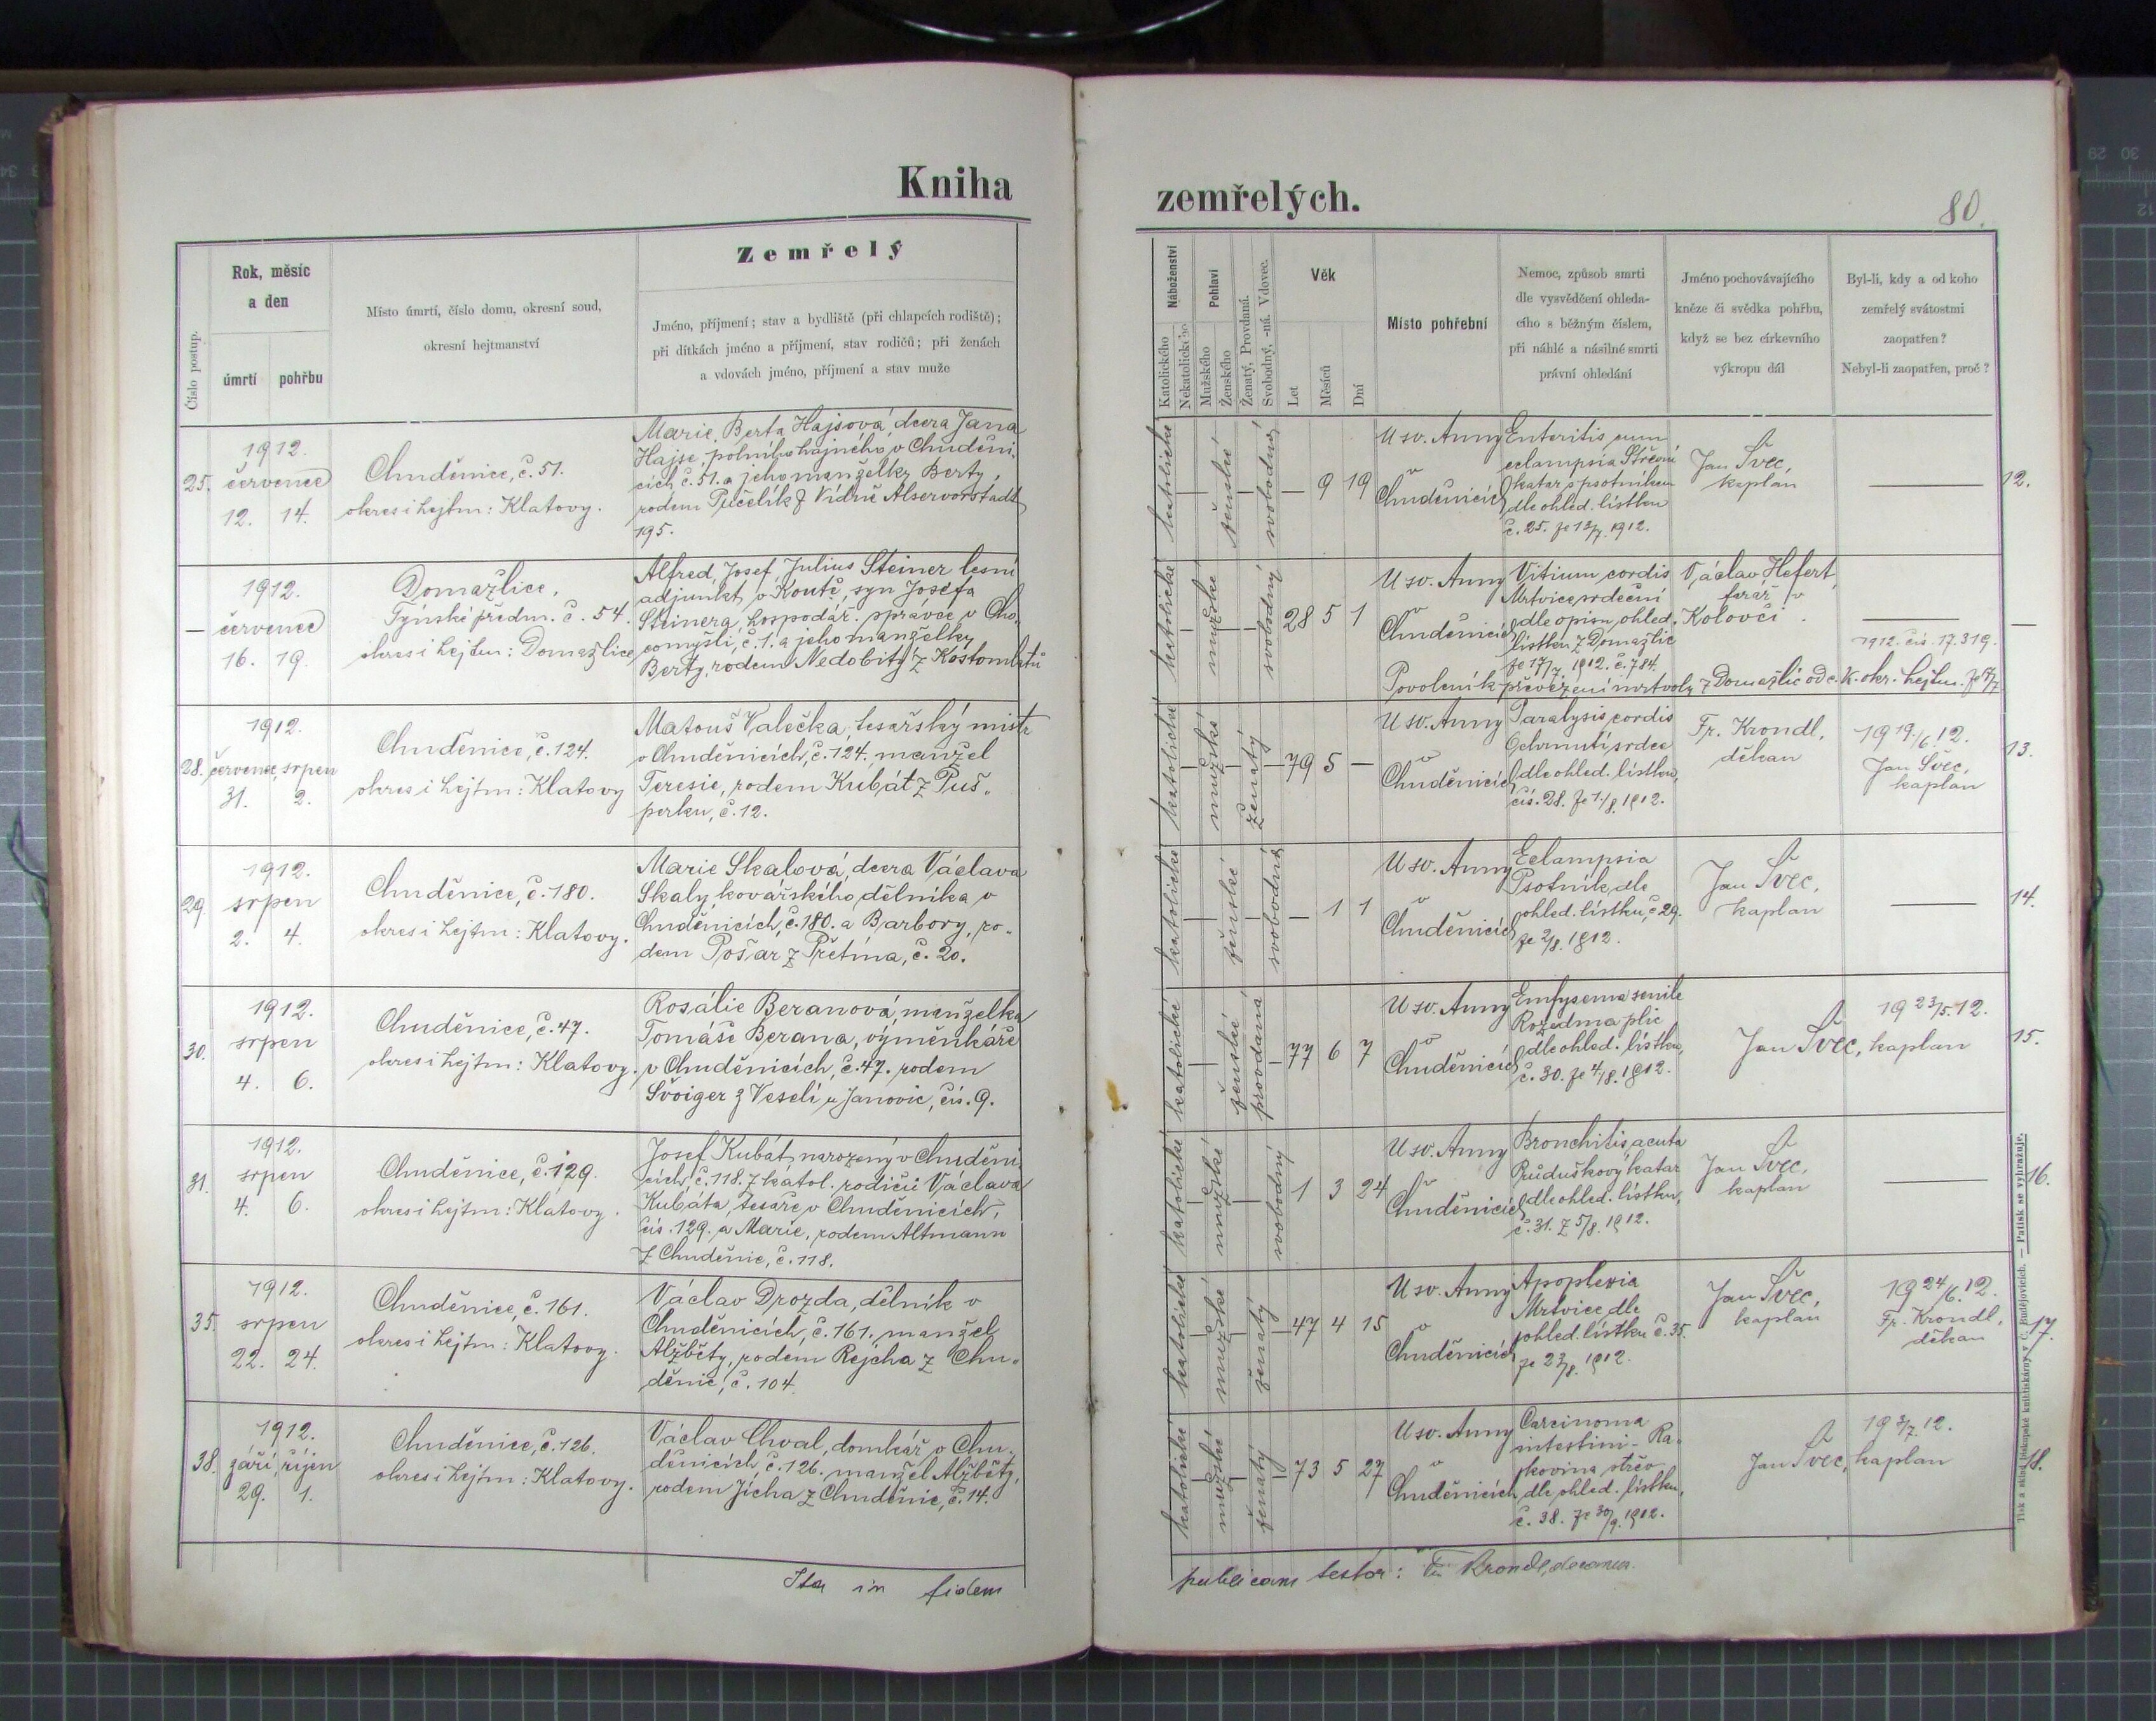 Kniha
zemřelých.
80.
Číslo postup.
Rok, měsíc
a den
úmrtí
pohřbu
Místo úmrtí, číslo domu, okresní soud,
okresní hejtmanství
Zemřelý
Jméno, příjmení; stav a bydliště (při chlapcích rodiště);
při dítkách jméno a příjmení, stav rodičů; při ženách
a vdovách jméno, příjmení a stav muže
Náboženství
Katolického
Nekatolického
Pohlaví
Mužského
Ženského
Ženatý, Provdaná.
Svobodný, -ná. Vdovec.
Věk
Let
Měsíců
Dní
Místo pohřební
Nemoc, způsob smrti
dle vysvědčení ohleda-
cího s běžným číslem,
při náhlé a násilné smrti
právní ohledání
Jméno pochovávajícího
kněze či svědka pohřbu,
když se bez církevního
výkropu dál
Byl-li, kdy a od koho
zemřelý svátostmi
zaopatřen?
Nebyl-li zaopatřen, proč?
25.
1912.
červenec
12. 14.
Chuděnice, č. 51.
okres i hejtm: Klatovy.
Marie, Berta Hajsová, dcera Jana
Hajse, polního hajného v Chuděni-
cích č. 51. a jeho manželky Berty,
rodem Pučelík z Vídně Alservorstadt
195.
katolické
ženské
svobodná
— 9 19
U sv. Anny
v
Chuděnicích
Enteritis cum
eclampsia Střevní
katar s psotníkem
dle ohled. lístku
č. 25. ze 12/7. 1912.
Jan Švec,
kaplan
—
12.
—
1912.
červenec
16. 19.
Domažlice,
Týnské předm. č. 54.
okres i hejtm: Domažlice
Alfred, Josef, Julius Steiner lesní
adjunkt v Koutě, syn Josefa
Steinera, hospodář. správce v Cho-
comyšli, č. 1. a jeho manželky
Berty, rodem Nedobitý z Kostomlatů
katolické
mužské
svobodný
28 5 1
U sv. Anny
v
Chuděnicích
Vitium cordis
Mrtvice srdeční
dle opisu ohled.
lístku z Domažlic
ze 17/7. 1912. č. 784.
Václav Hefert,
farář v
Kolovči.
1912. čís. 17.319.
Povolení k převezení mrtvoly z Domažlic od c. k. okr. hejtm. ze 17/7
—
28.
1912.
červenec, srpen
31. 2.
Chuděnice, č. 124.
okres i hejtm: Klatovy
Matouš Valečka, tesařský mistr
v Chuděnicích, č. 124. manžel
Teresie, rodem Kubát z Puš-
perku, č. 12.
katolické
mužské
ženatý
79 5 —
U sv. Anny
v
Chuděnicích
Paralysis cordis
Ochrnutí srdce
dle ohled. lístku,
čís. 28. ze 1./8. 1912.
Fr. Krondl,
děkan
19 19./6. 12.
Jan Švec,
kaplan
13.
29.
1912.
srpen
2. 4.
Chuděnice, č. 180.
okres i hejtm: Klatovy.
Marie Skalová, dcera Václava
Skaly, kovářského dělníka v
Chuděnicích, č. 180. a Barbory, ro-
dem Pošar z Přetína, č. 20.
katolické
ženské
svobodná
— 1 1
U sv. Anny
v
Chuděnicích
Eclampsia
Psotník, dle
ohled. lístku, č. 29.
ze 2/8. 1912.
Jan Švec,
kaplan
—
14.
30.
1912.
srpen
4. 6.
Chuděnice, č. 47.
okres i hejtm: Klatovy.
Rosálie Beranová, manželka
Tomáše Berana, výměnkáře
v Chuděnicích, č. 47. rodem
Švoiger z Veselí u Janovic, čís. 9.
katolické
ženské
provdaná
77 6 7
U sv. Anny
v
Chuděnicích
Emfysema senile
Rozedma plic
dle ohled. lístku,
č. 30. ze 4/8. 1912.
19 23/5. 12.
Jan Švec, kaplan
15.
31.
1912.
srpen
4. 6.
Chuděnice, č. 129.
okres i hejtm: Klatovy.
Josef Kubát, narozený v Chuděni-
cích, č. 118. z katol. rodičů Václava
Kubáta, tesaře v Chuděnicích,
čís. 129. a Marie, rodem Altmann
z Chuděnic, č. 118.
katolické
mužské
svobodný
1 3 24
U sv. Anny
v
Chuděnicích
Bronchitis acuta
Průduškový katar
dle ohled. lístku,
č. 31. z 5/8. 1912.
Jan Švec,
kaplan
—
16.
35.
1912.
srpen
22. 24.
Chuděnice, č. 161.
okres i hejtm: Klatovy.
Václav Drozda, dělník v
Chuděnicích, č. 161. manžel
Alžběty, rodem Rejcha z Chu-
děnic, č. 104.
katolické
mužské
ženatý
47 4 15
U sv. Anny
v
Chuděnicích
Apoplexia
Mrtvice dle
ohled. lístku č. 35.
ze 23/8. 1912.
Jan Švec,
kaplan
19 24/6. 12.
Fr. Krondl,
děkan
17.
38.
1912.
září, říjen
29. 1.
Chuděnice, č. 126.
okres i hejtm: Klatovy.
Václav Chval, domkář v Chu-
děnicích č. 126. manžel Alžběty,
rodem Jícha z Chuděnic, č. 14.
katolické
mužské
ženatý
73 5 27
U sv. Anny
v
Chuděnicích
Carcinoma
intestini - Ra-
kovina střev
dle ohled. lístku,
č. 38. ze 30/9. 1912.
Jan Švec, kaplan
18.
Ita in fidem
publicam testor: Fr. Krondl, decanus.
Tisk a sklad biskupské knihtiskárny v Č. Budějovicích. — Patisk se vyhrazuje.